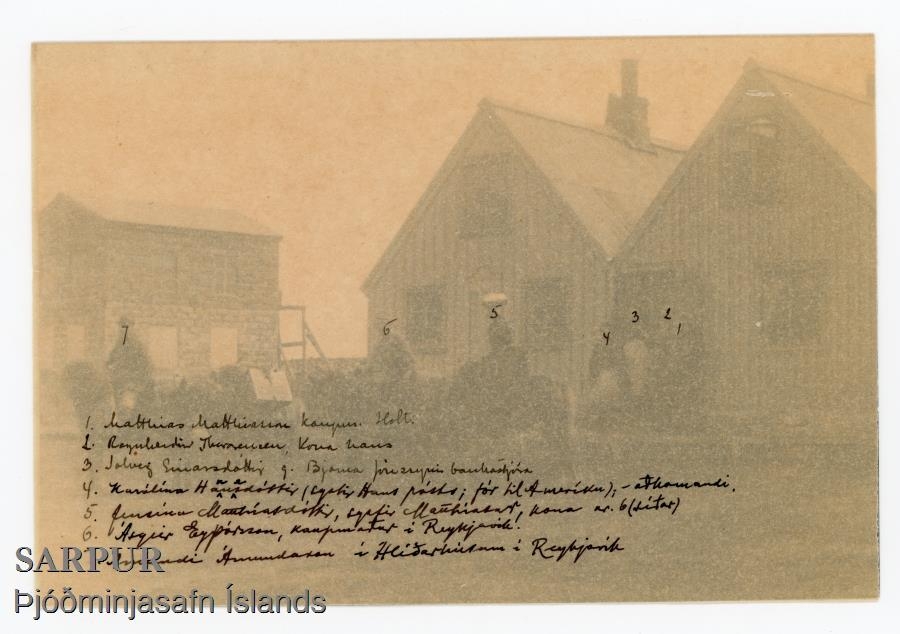 7
6
5
4
3
2
1
1. Matthias Matthiasson kaupm. Holt.
2. Ragnheiður Thorarensen, kona hans
3. Solveg Einarsdóttir g. Bjarna Jónssyni bankastjóra
4. Karólína Hansdóttir (systir Hans pósts; fór til Ameríku); - aðkomandi.
5. Jensina Matthiasdóttir, systir Matthiasar, kona nr. 6 (síðar)
6. Ásgeir Eyþórsson, kaupmaður í Reykjavík.
7. Ámundi Ámundason í Hlíðarhúsum í Reykjavík
SARPUR
Þjóðminjasafn Íslands